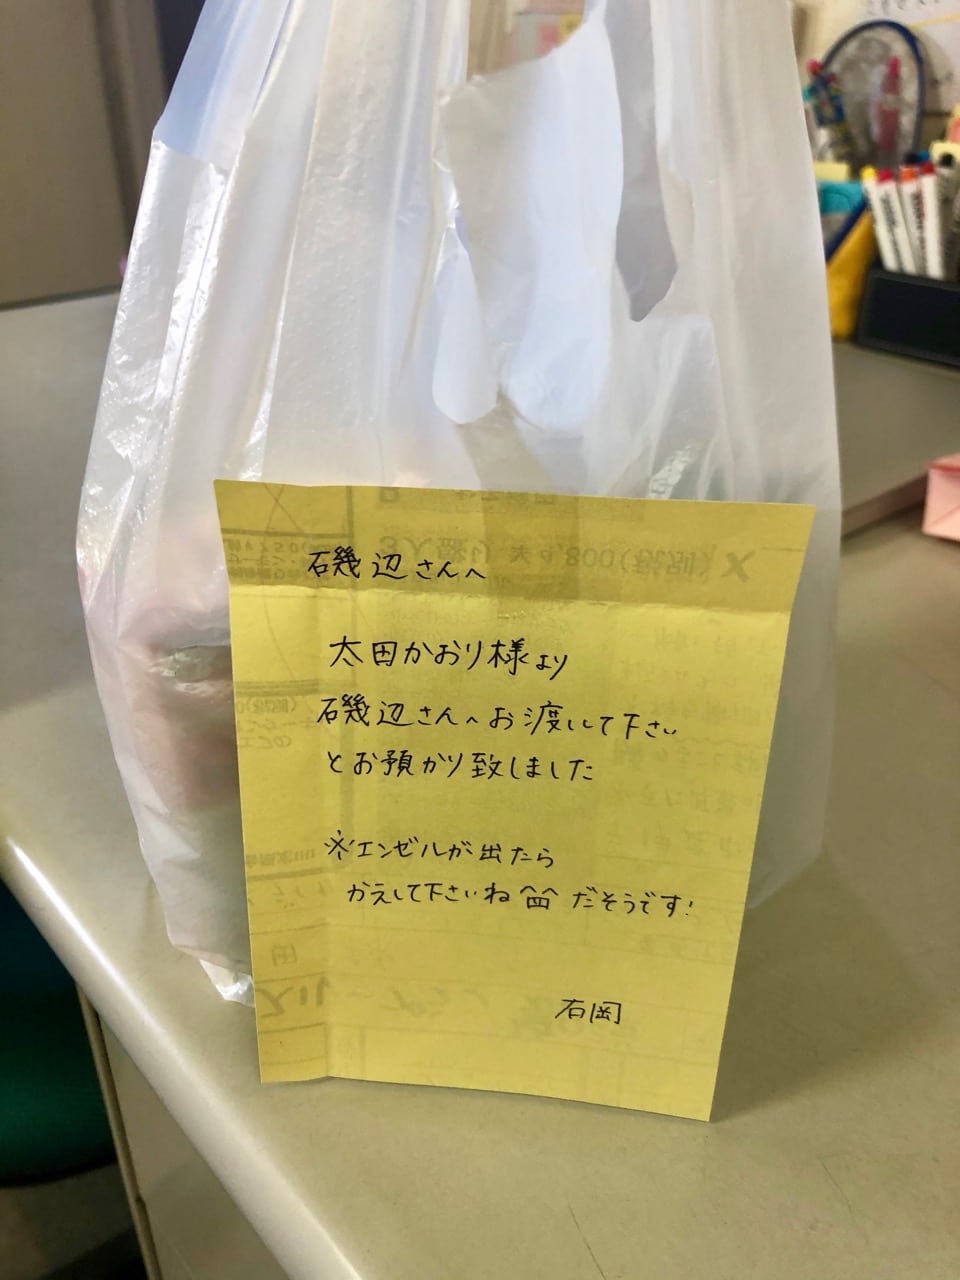 磯辺さんへ
太田かおり様より
磯辺さんへお渡しして下さい
とお預かり致しました
※エンゼルが出たら
かえして下さいね だそうです!
石岡